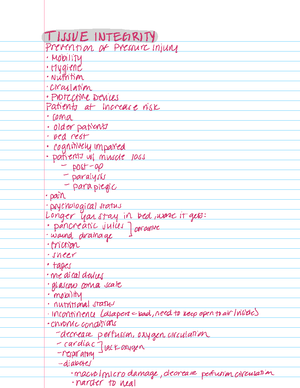 TISSUE INTEGRITY
Prevention of Pressure Injury
• Mobility
• Hygiene
• Nutrition
• Circulation
• Protective Devices
Patients at increase risk
• coma
• older patients
• bed rest
• cognitively impaired
• patients w/ muscle loss
– post-op
– paralysis
– paraplegic
• pain
• psychological status
Longer you stay in bed, worse it gets:
• pancreatic juices ] corrosive
• wound drainage
• friction
• sheer
• tapes
• medical devices
• glascow coma scale
• mobility
• nutritional status
• incontinence (diapers = bad, need to keep open to air/inside)
• chronic conditions
– decrease perfusion, oxygen circulation
– cardiac ] lack oxygen
– respiratory
– diabetes
• macro/micro damage, decrease perfusion, circulation
• harder to heal